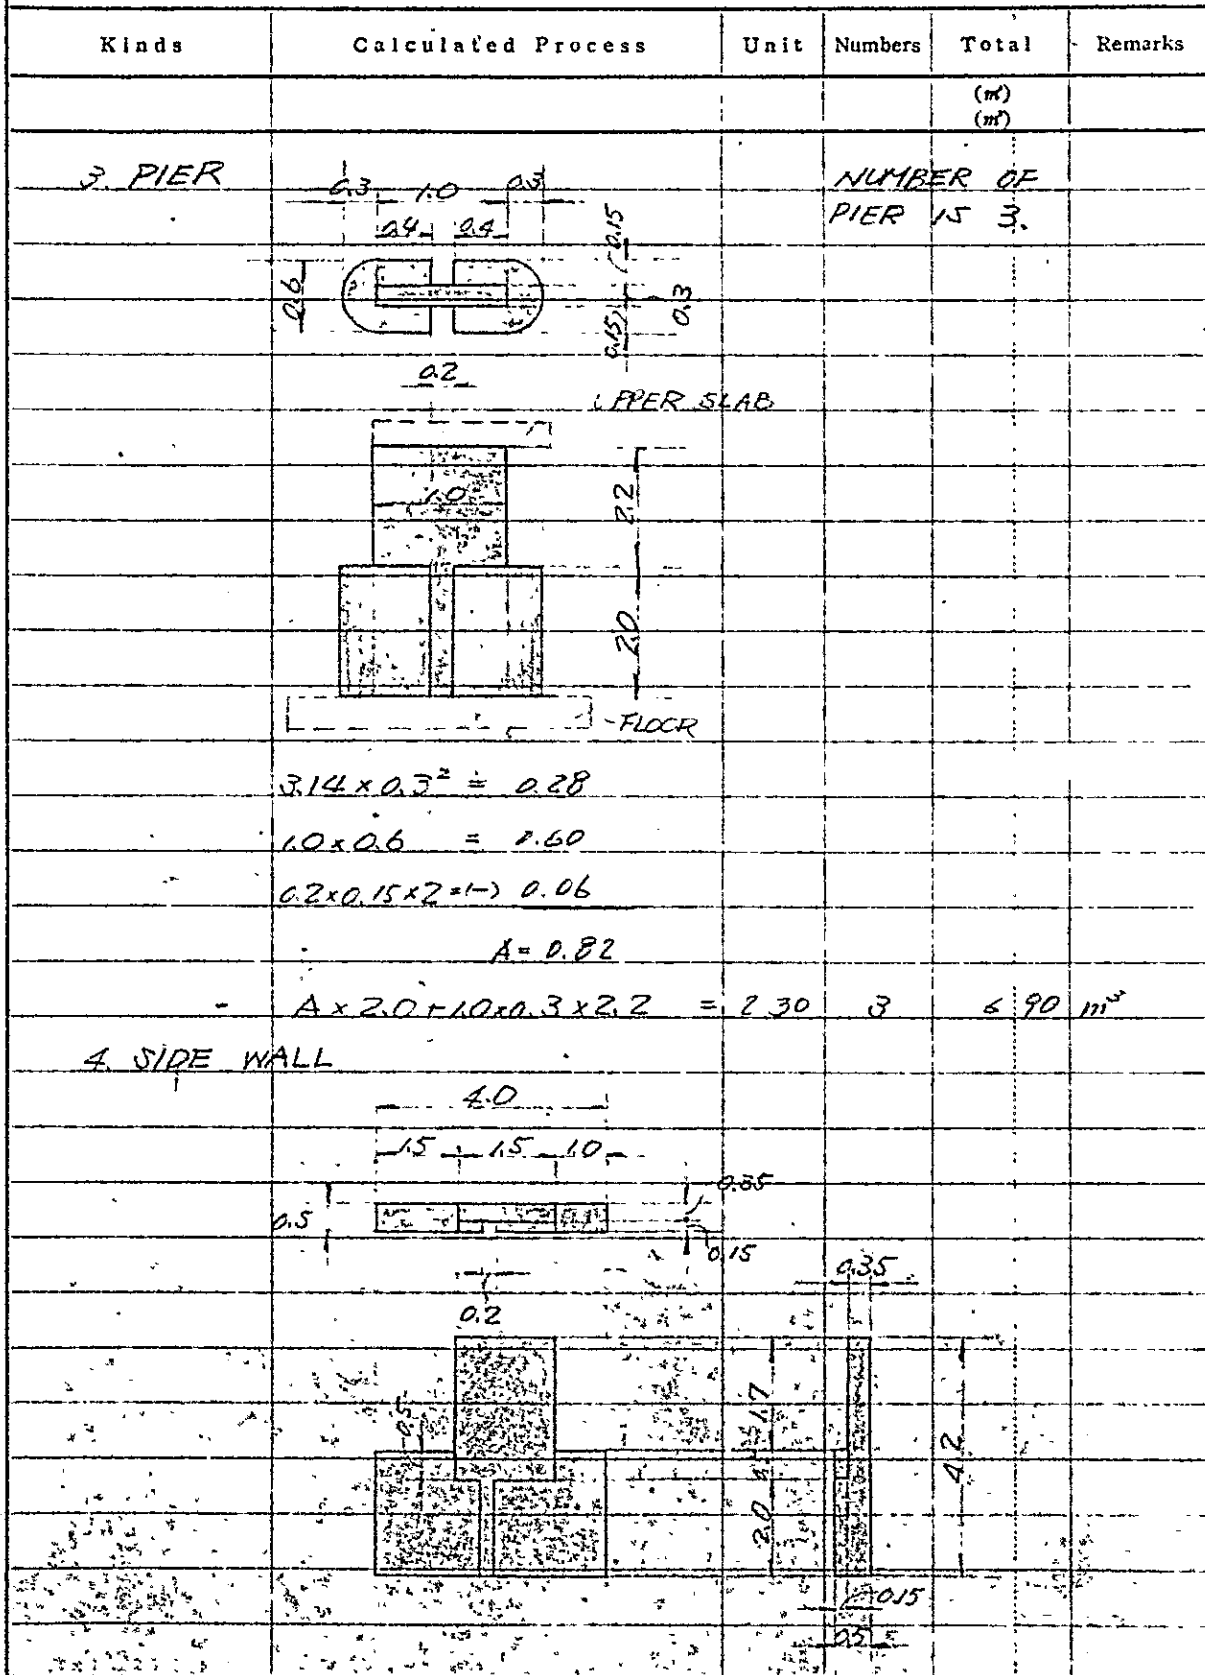 Kinds Calculated Process Unit Numbers Total Remarks
(m²)
(m³)
3. PIER
NUMBER OF
PIER IS 3.
0.3 1.0 0.3
0.4 0.4
0.15
0.6
0.3
0.15
0.2
UPPER SLAB
1.0
2.2
2.0
FLOOR
3.14 × 0.3² ≒ 0.28
1.0 × 0.6 = 0.60
0.2 × 0.15 × 2 = (-) 0.06
A = 0.82
A × 2.0 + 1.0 × 0.3 × 2.2 = 2.30 3 6.90 m³
4. SIDE WALL
4.0
1.5 1.5 1.0
0.35
0.5
0.15
0.35
0.2
0.5
1.7
4.2
2.0
0.15
0.5